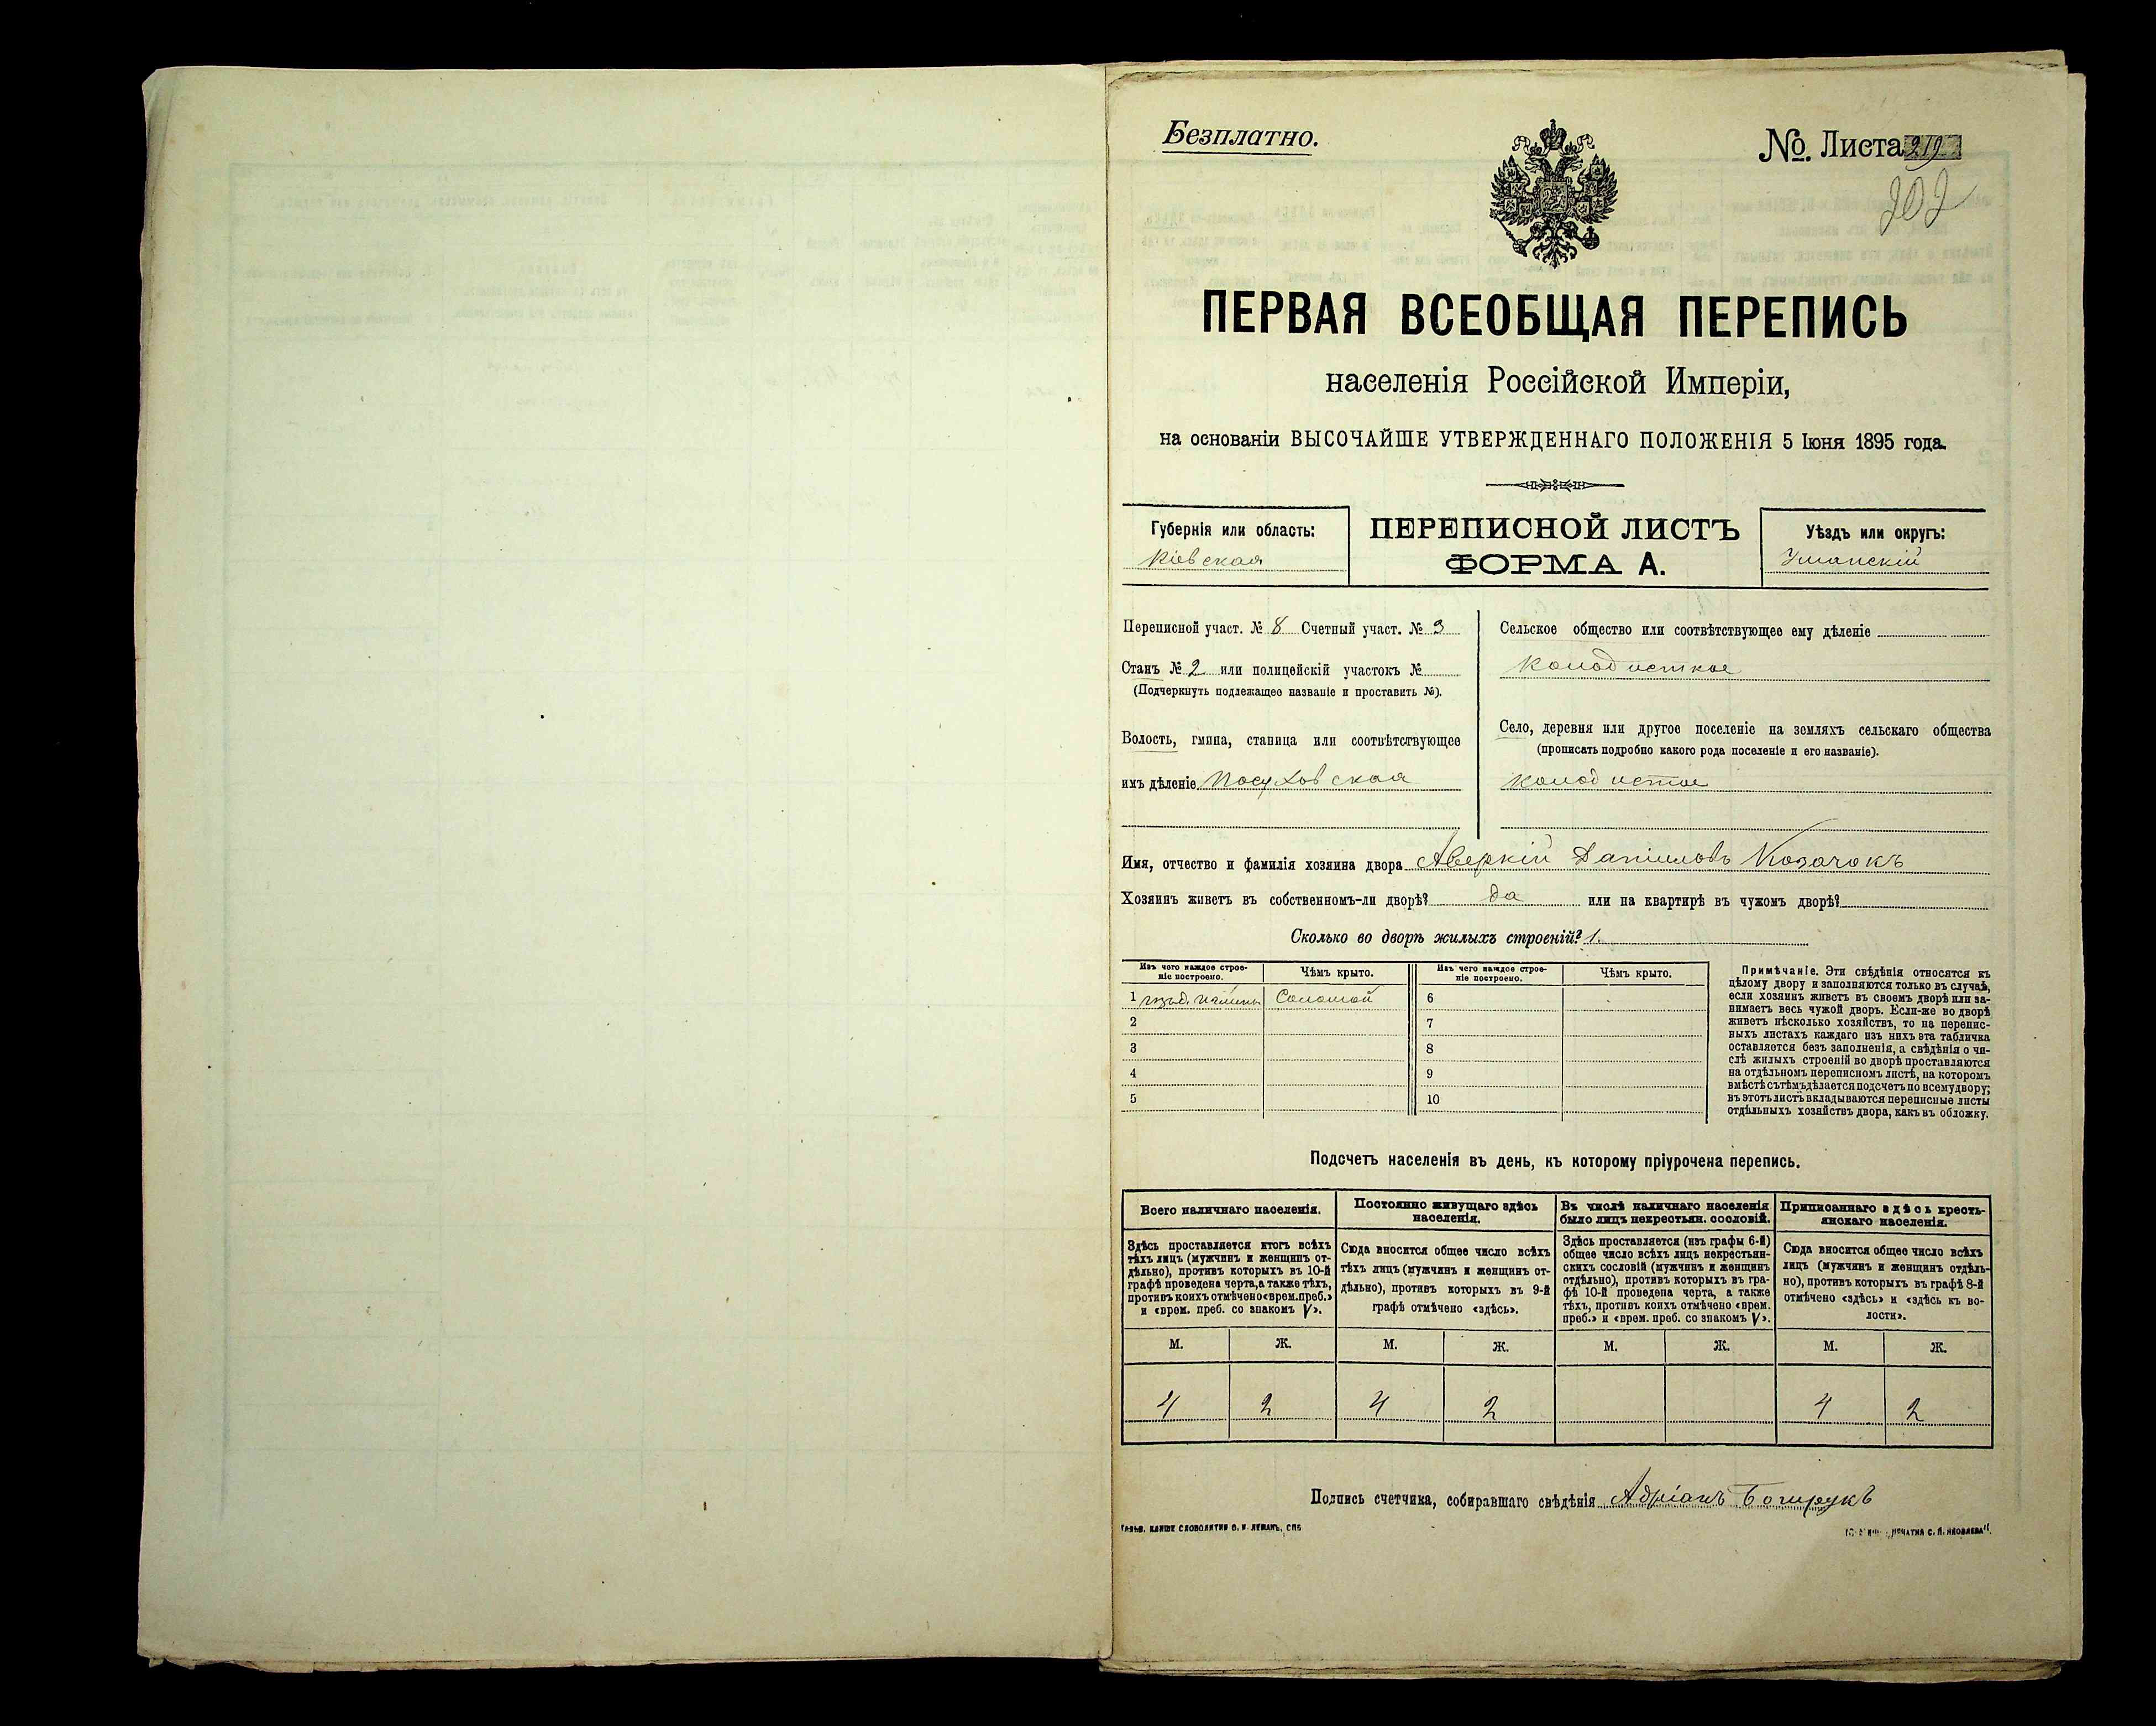 Безплатно.
№. Листа 219
202
ПЕРВАЯ ВСЕОБЩАЯ ПЕРЕПИСЬ
населенія Россійской Имперіи,
на основаніи ВЫСОЧАЙШЕ УТВЕРЖДЕННАГО ПОЛОЖЕНІЯ 5 Іюня 1895 года.
Губернія или область:
Кіевская
ПЕРЕПИСНОЙ ЛИСТЪ
ФОРМА А.
Уѣздъ или округъ:
Уманскій
Переписной участ. № 8 Счетный участ. № 3
Станъ № 2 или полицейскій участокъ №
(Подчеркнуть подлежащее названіе и проставить №).
Волость, гмина, станица или соотвѣтствующее
имъ дѣленіе Посуховская
Сельское общество или соотвѣтствующее ему дѣленіе
Колодисткое
Село, деревня или другое поселеніе на земляхъ сельскаго общества
(прописать подробно какого рода поселеніе и его названіе).
Колодистое
Имя, отчество и фамилія хозяина двора Аверкій Даніиловъ Козачокъ
Хозяинъ живетъ въ собственномъ-ли дворѣ? да или на квартирѣ въ чужомъ дворѣ?
Сколько во дворѣ жилыхъ строеній? 1.
Изъ чего каждое строе-
ніе построено.
Чѣмъ крыто.
Изъ чего каждое строе-
ніе построено.
Чѣмъ крыто.
1 Соломой 6
2 7
3 8
4 9
5 10
Примѣчаніе. Эти свѣдѣнія относятся къ
цѣлому двору и заполняются только въ случаѣ,
если хозяинъ живетъ въ своемъ дворѣ или за-
нимаетъ весь чужой дворъ. Если-же во дворѣ
живетъ нѣсколько хозяйствъ, то на перепис-
ныхъ листахъ каждаго изъ нихъ эта табличка
оставляется безъ заполненія, а свѣдѣнія о чи-
слѣ жилыхъ строеній во дворѣ проставляются
на отдѣльномъ переписномъ листѣ, на которомъ
вмѣстѣ съ тѣмъ дѣлается подсчетъ по всему двору;
въ этотъ листъ вкладываются переписные листы
отдѣльныхъ хозяйствъ двора, какъ въ обложку.
Подсчетъ населенія въ день, къ которому пріурочена перепись.
Всего наличнаго населенія.
Здѣсь проставляется итогъ всѣхъ
тѣхъ лицъ (мужчинъ и женщинъ от-
дѣльно), противъ которыхъ въ 10-й
графѣ проведена черта, а также тѣхъ,
противъ коихъ отмѣчено «врем. преб.»
и «врем. преб. со знакомъ V».
Постоянно живущаго здѣсь
населенія.
Сюда вносится общее число всѣхъ
тѣхъ лицъ (мужчинъ и женщинъ от-
дѣльно), противъ которыхъ въ 9-й
графѣ отмѣчено «здѣсь».
Въ числѣ наличнаго населенія
было лицъ некрестьян. сословій.
Здѣсь проставляется (изъ графы 6-й)
общее число всѣхъ лицъ некрестьян-
скихъ сословій (мужчинъ и женщинъ
отдѣльно), противъ которыхъ въ гра-
фѣ 10-й проведена черта, а также
тѣхъ, противъ коихъ отмѣчено «врем.
преб.» и «врем. преб. со знакомъ V».
Приписаннаго здѣсь кресть-
янскаго населенія.
Сюда вносится общее число всѣхъ
лицъ (мужчинъ и женщинъ отдѣль-
но), противъ которыхъ въ графѣ 8-й
отмѣчено «здѣсь» и «здѣсь къ во-
лости».
М. Ж. М. Ж. М. Ж. М. Ж.
4 2 4 2 4 2
Подпись счетчика, собиравшаго свѣдѣнія Адріанъ
СЛОВОЛИТНИ О. И. ЛЕМАНЪ, СПБ
С. П. ЯКОВЛЕВА